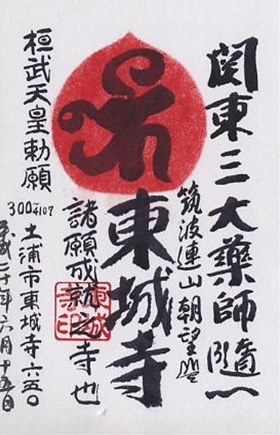 関東三大薬師随一
筑波連山朝望岺
東城寺
諸願成就之寺也
東城寺印
桓武天皇勅願
300-4107
土浦市東城寺六五〇
平成二十年六月十五日